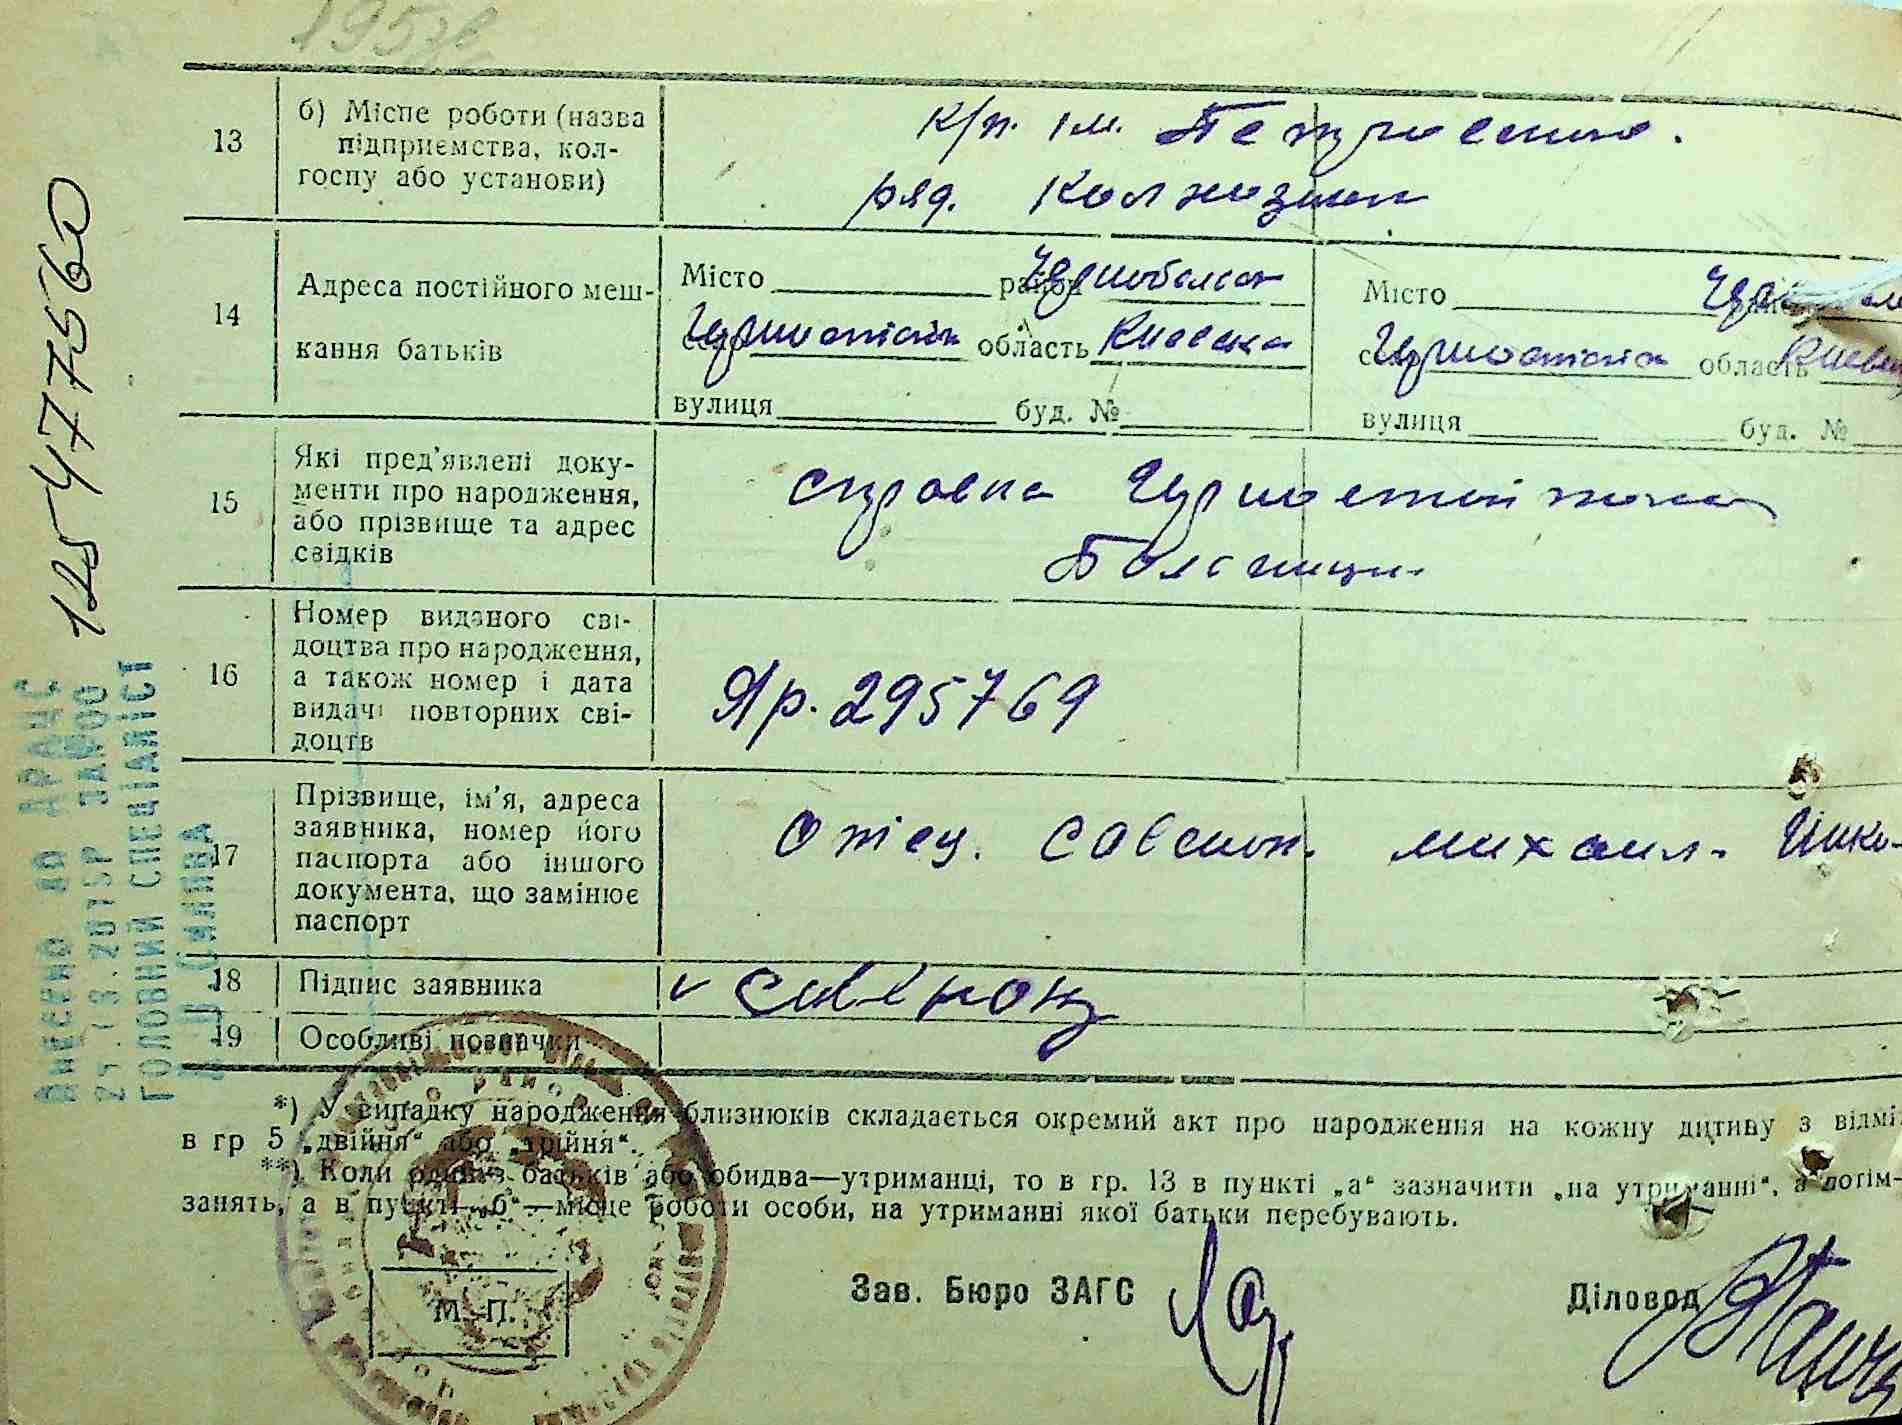 13
б) Місце роботи (назва
підприємства, кол-
госпу або установи)
к/п. ім. Петровского.
ряд. Колхозник
14
Адреса постійного меш-
кання батьків
Місто район
область Киевска
вулиця буд. №
Місто
область
вулиця буд. №
15
Які пред'явлені доку-
менти про народження,
або прізвище та адрес
свідків
справка
Больници
16
Номер виданого сві-
доцтва про народження,
а також номер і дата
видачі повторних сві-
доцтв
Яр. 295769
17
Прізвище, ім'я, адреса
заявника, номер його
паспорта або іншого
документа, що замінює
паспорт
Отец. Савенок. Михаил
18
Підпис заявника
19
Особливі позначки
*) У випадку народження близнюків складається окремий акт про народження на кожну дитину з відмі-
в гр 5 „двійня“ або „трійня“.
**) Коли один з батьків або обидва—утриманці, то в гр. 13 в пункті „а“ зазначити „на утриманні“, а потім-
занять, а в пункті „б“—місце роботи особи, на утриманні якої батьки перебувають.
М. П.
Зав. Бюро ЗАГС
Діловод
Внесено до ДРАЦС
ГОЛОВНИЙ СПЕЦІАЛІСТ